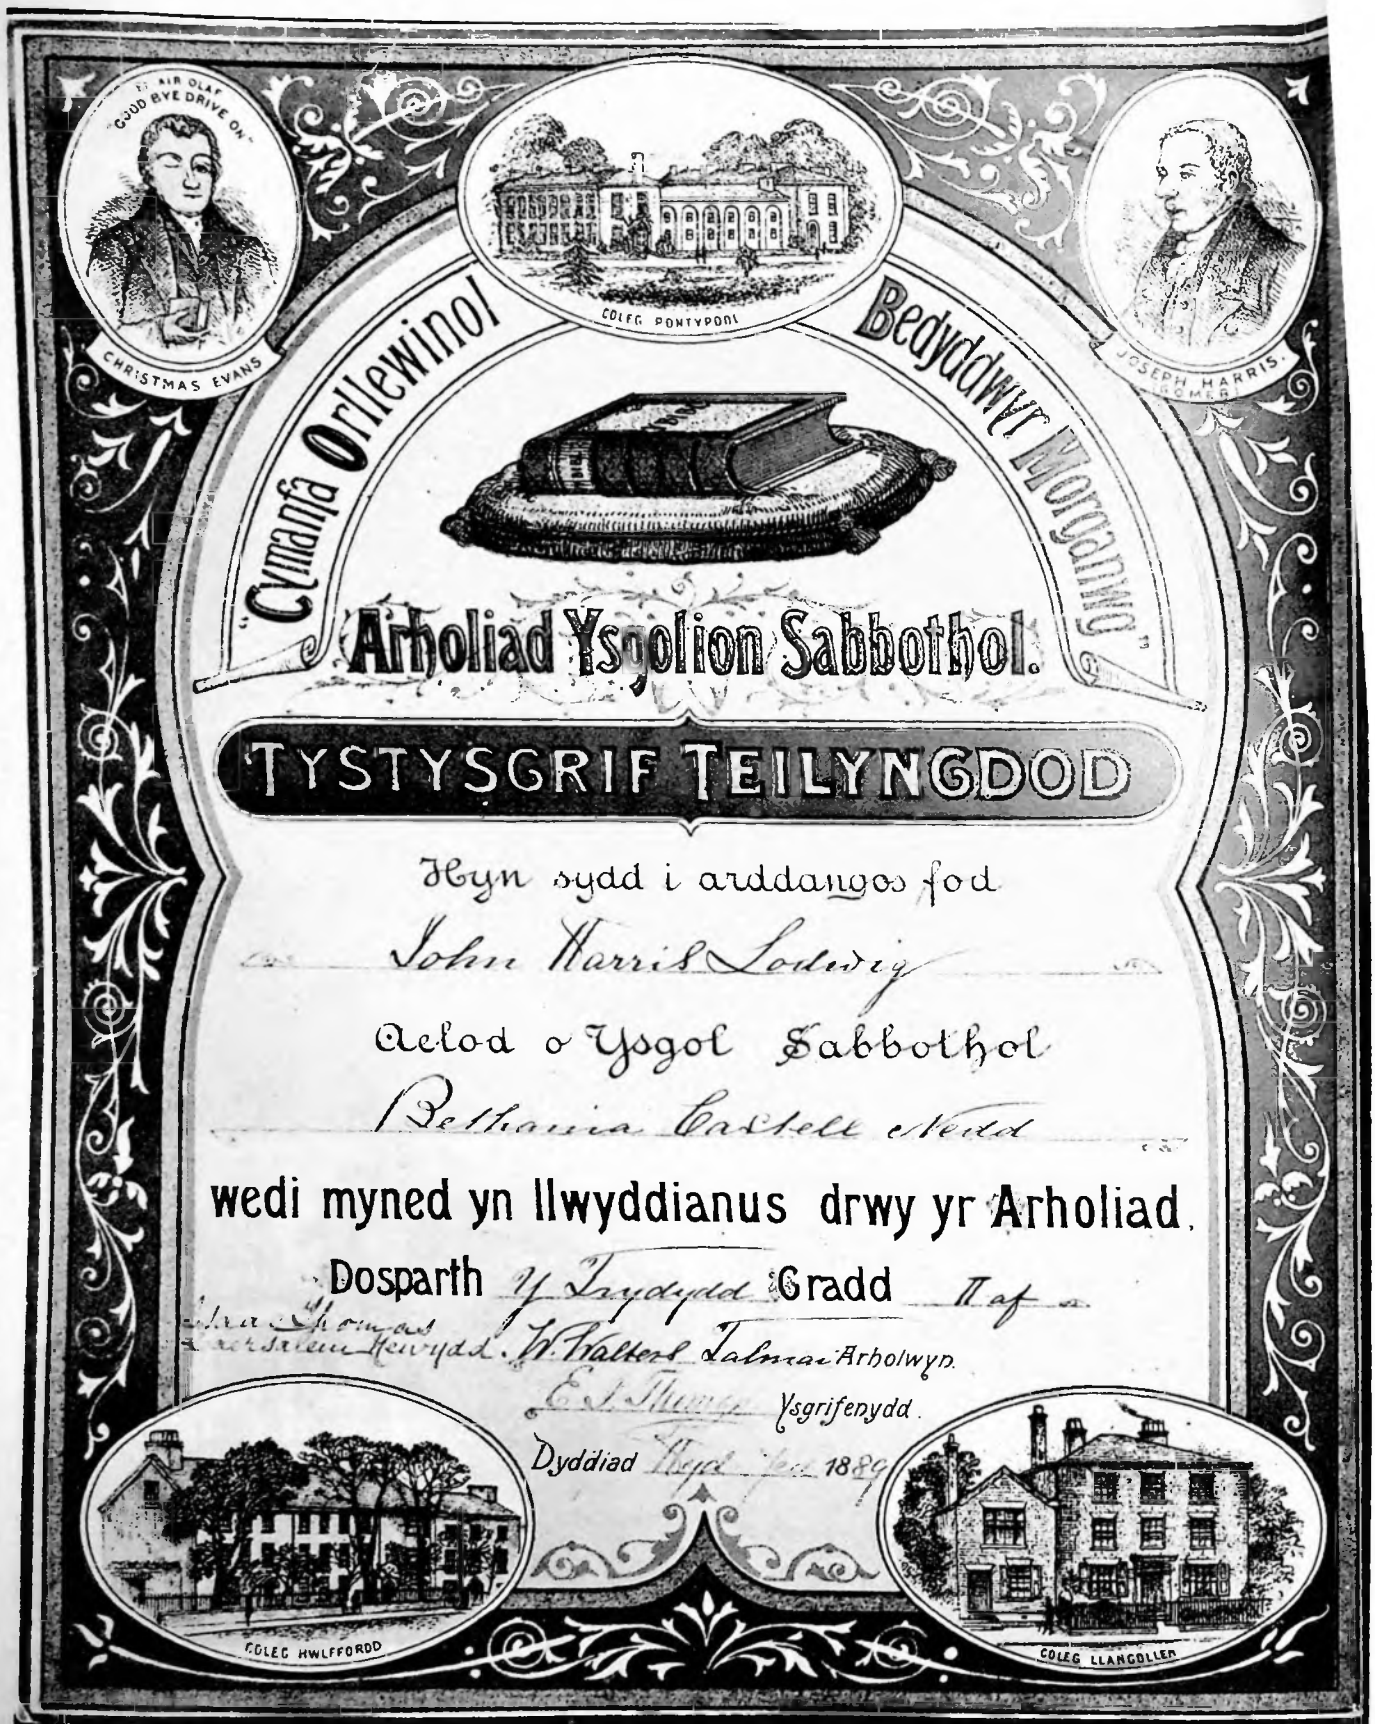 EI AIR OLAF
"GOOD BYE DRIVE ON"
CHRISTMAS EVANS
COLEG PONTYPOOL
JOSEPH HARRIS.
(GOMER)
"Cymanfa Orllewinol Bedyddwyr Morganwg"
BIBL
Arholiad Ysgolion Sabbothol.
TYSTYSGRIF TEILYNGDOD
Hyn sydd i arddangos fod
John Harris Lodwig
Aelod o Ysgol Sabbothol
Bethania Castell Nedd
wedi myned yn llwyddianus drwy yr Arholiad.
Dosparth Y Trydydd Gradd II af
Thomas
Caersalem Newydd. W. Walters Talmai Arholwyr.
E. T. Ysgrifenydd.
Dyddiad 1889
COLEG HWLFFORDD
COLEG LLANGOLLEN